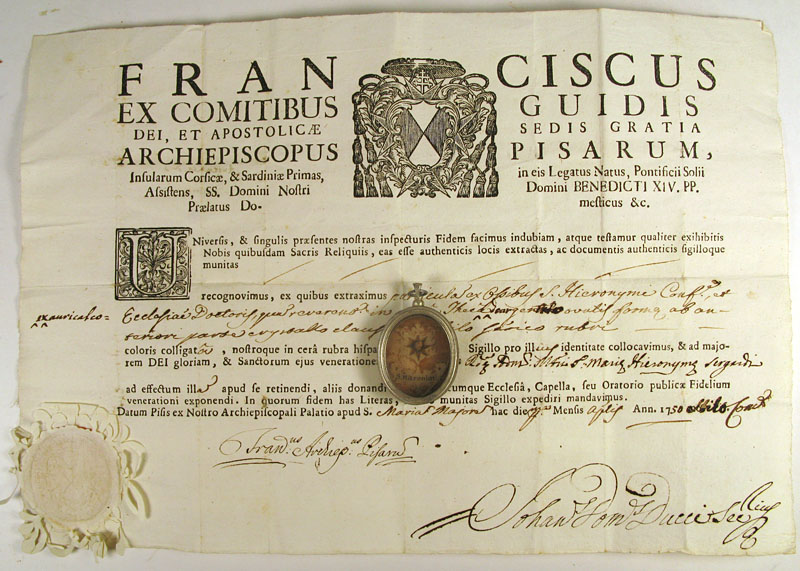 FRANCISCUS
EX COMITIBUS GUIDIS
DEI, ET APOSTOLICÆ SEDIS GRATIA
ARCHIEPISCOPUS PISARUM,
Insularum Corsicæ, & Sardiniæ Primas, in eis Legatus Natus, Pontificii Solii
Assistens, SS. Domini Nostri Domini BENEDICTI XIV. PP.
Prælatus Do- mesticus &c.
UNiversis, & singulis præsentes nostras inspecturis Fidem facimus indubiam, atque testamur qualiter exhibitis
Nobis quibusdam Sacris Reliquiis, eas esse authenticis locis extractas, ac documentis authenticis sigilloque
munitas
recognovimus, ex quibus extraximus ex Ossibus S. Hieronymi Conf.ris, et
ex auricalco Ecclesiæ Doctoris, quas reverenter in Theca ovalis formæ ab an-
teriori parte crystallo clausa filo serico rubri
coloris colligata, nostroque in cerâ rubra hispa Sigillo pro illius identitate collocavimus, & ad majo-
rem DEI gloriam, & Sanctorum ejus veneratione Mariæ Hieronymæ
ad effectum illas apud se retinendi, aliis donandi cumque Ecclesiâ, Capella, seu Oratorio publicæ Fidelium
venerationi exponendi. In quorum fidem has Literas, munitas Sigillo expediri mandavimus.
Datum Pisis ex Nostro Archiepiscopali Palatio apud S. Mariam Majorem hac die Mensis Aplis Ann. 1750
Fran.us Archiep.us Pisarum
Johan Dom.s Ducci Sec.rius